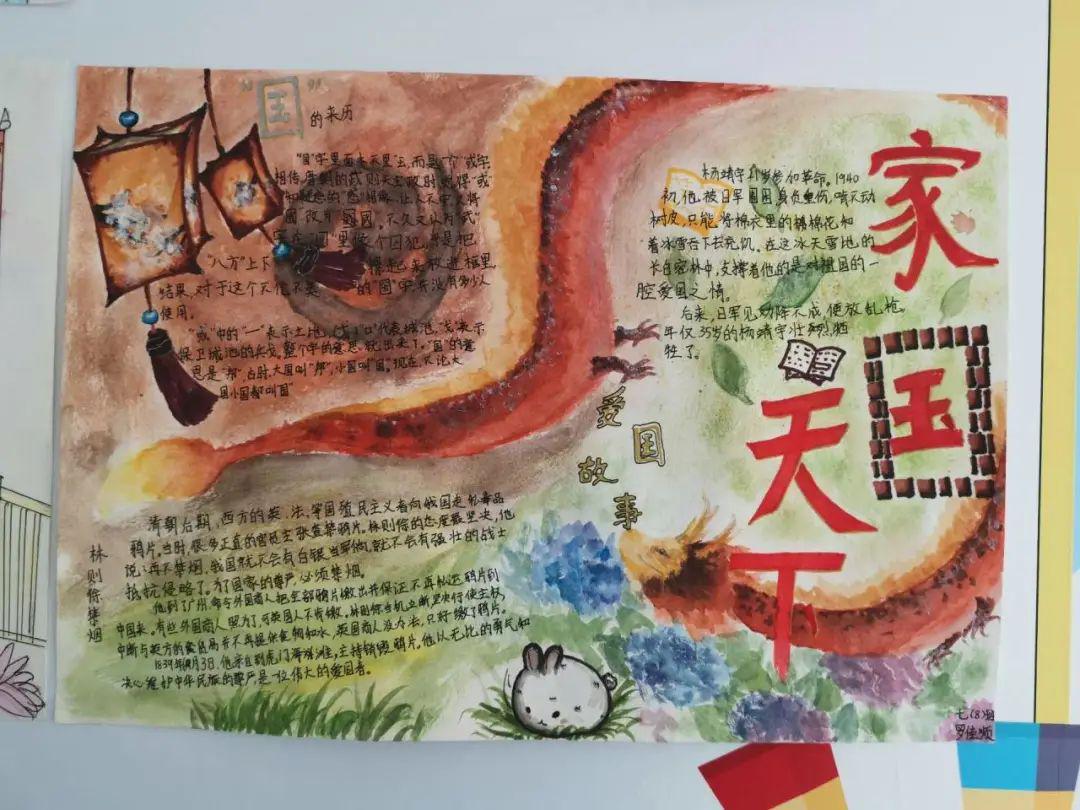 "国"
的来历
"国"字里面本不里"玉,而是"个"或字
相传,唐朝的武则天主政时,觉得"或"
"八方"上下
结果,对于这个天个不 的"国"字并没有多少人
使用。
"或"中的"一"表示土地,"口"代表城池,"戈"表示
保卫城池的兵戈。整个字的意思就出来了,"国"的意
思是"邦",古时,大国叫"邦",小国叫"国。现在,不论大
国小国都叫国"
杨靖宇 岁参加革命。1940
初,他被日军围困,身负重伤,啃不动
树皮,只能将棉衣里的 棉花和
着冰雪吞下去充饥。在这冰天雪地的
长白密林中,支撑着他的是对祖国的一
腔爱国之情。
后来,日军见劝降不成,便放乱枪,
年仅35岁的杨靖宇壮烈牺
牲了。
家
国
天
下
爱
国
故
事
林则徐禁烟
清朝后期,西方的英、法、等国殖民主义者向我国走私毒品
鸦片。当时,很多正直的官员主张查禁鸦片。林则徐的态度最坚决,他
说:再不禁烟,我国就不会有白银当军饷,就不会有强壮的战士
抵抗侵略了。为了国家的尊严,必须禁烟。
他到了广州,命令外国商人把全部鸦片缴出并保证不再私运鸦片到
中国来。有些外国商人照办了,可英国人不肯缴。林则徐当机立断坚决行使主权,
中断与英方的贸易 并不再提供食物和水,英国商人没办法,只好缴了鸦片。
1839年6月3日,他亲自到虎门海滩,主持销毁鸦片。他以无比的勇气和
决心维护中华民族的尊严,是一位伟大的爱国者。
七(8)班
罗佳颖